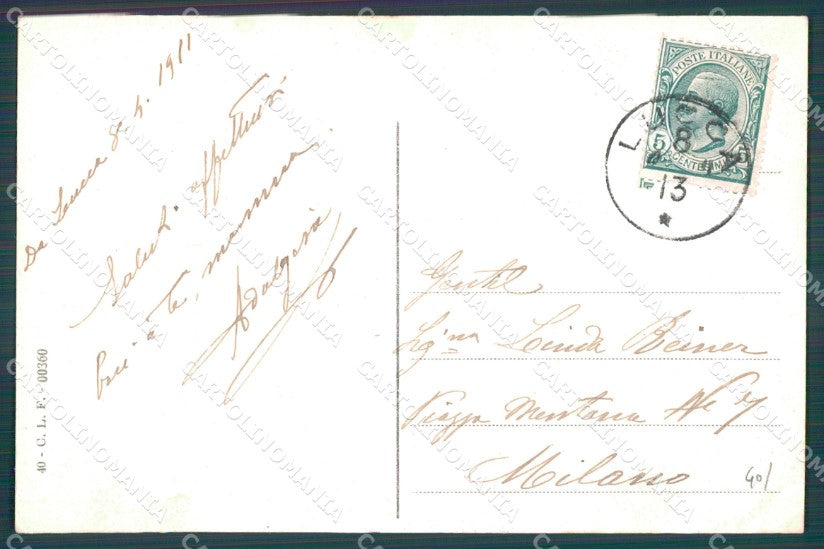 Da Lucca 8. 4. 1911
Saluti affettuosi
a te, mamma
Adalgisa
40 - C. L. F. - 00360
POSTE ITALIANE
5 5
CENTESIMI
LUCCA
8
13
Gentil
Sig.na Linda Beiner
Piazza Mentana No 7
Milano
40/
CARTOLINOMANIA